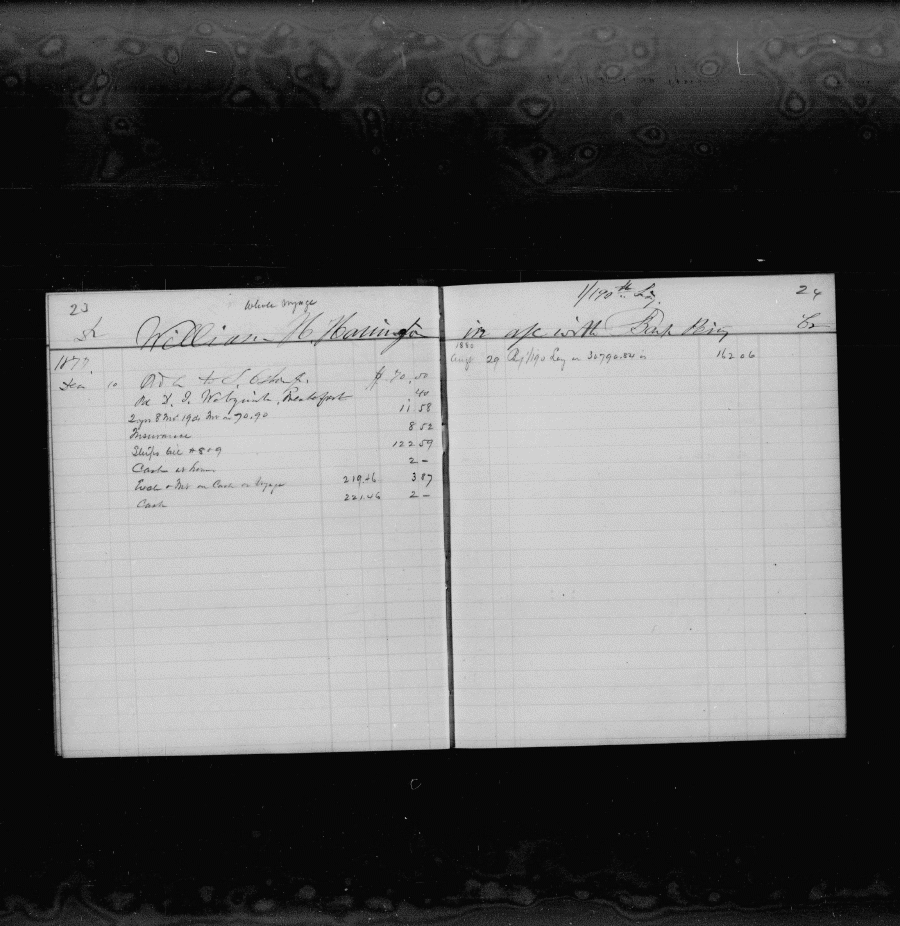 23
Whole Voyage
Dr William H. Harrington
1877.
Dec 10 Ord to J. $ 70.50
Pd. .40
2 yrs 8 Mo. 19 ds Int on 70.90 11 58
Insurance 8 52
Ships bill 122 59
Cash at home 2 –
& Int on Cash on Voyage 219.46 3 87
Cash 221.46 2 –
1/190th Lay
24
in a/c with Bark Cr
1880
Aug 29 By 1/190 Lay on 30790.84 is 162 06